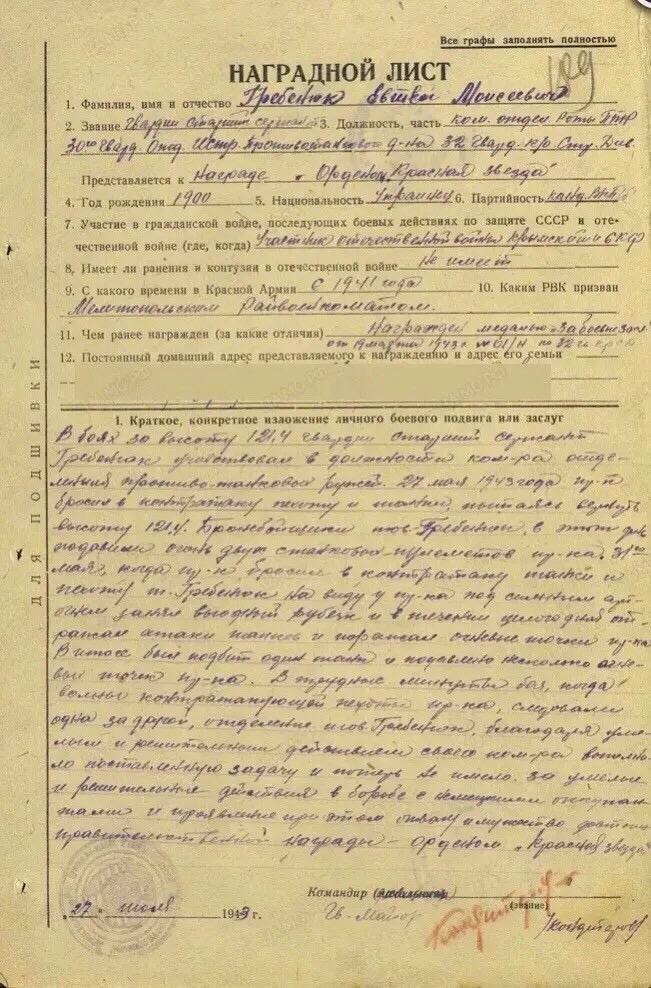 Все графы заполнять полностью
109
НАГРАДНОЙ ЛИСТ
1. Фамилия, имя и отчество Гребенюк Моисеевич
2. Звание Гвардии старший сержант 3. Должность, часть ком. отдел. Роты ПТР
30го Гвард. Отд. Истр. Противотанкового д-на 32 Гвард. к/р Стр. Див.
Представляется к Награде „Орденом Красная звезда"
4. Год рождения 1900 5. Национальность Украинец 6. Партийность канд. ВКП/б
7. Участие в гражданской войне, последующих боевых действиях по защите СССР и оте-
чественной войне (где, когда) Участник отечественной войны Крымский и СКФ
8. Имеет ли ранения и контузия в отечественной войне Не имеет
9. С какого времени в Красной Армии С 1941 года 10. Каким РВК призван
Мелитопольским Райвоенкоматом.
11. Чем ранее награжден (за какие отличия) Награжден медалью „За боевые
от 19 марта 1943 г. № 01/Н по 32 гв
12. Постоянный домашний адрес представляемого к награждению и адрес его семьи
ДЛЯ ПОДШИВКИ
I. Краткое, конкретное изложение личного боевого подвига или заслуг
В боях за высоту 121,4 гвардии старший сержант
Гребенюк участвовал в должности ком-ра отде-
ления противо-танковых ружей. 27 мая 1943 года пр-к
бросил в контратаку пехоту и танки, пытаясь вернуть
высоту 121,4. Бронебойщики тов. Гребенюк, в этот день
подавили огонь двух станковых пулеметов пр-ка. 31го
мая, когда пр-к бросил в контратаку танки и
пехоту т. Гребенюк на виду у пр-ка под сильным арт
огнем занял выгодный рубеж и в течении целого дня от-
ражал атаки танков и поражал огневые точки пр-ка
В итоге был подбит один танк и подавлено несколько огне-
вых точек пр-ка. В трудные минуты боя, когда
волны контратакующей пехоты пр-ка, следовали
одна за другой, отделение тов. Гребенюк, благодаря уме-
лым и решительным действием своего ком-ра выполни-
ло поставленную задачу и потерь не имело. За умелые
и решительные действия в борьбе с немецкими оккупан-
тами и проявление при этом отвагу и мужество достоин
правительственной награды – орденом „Красная звезда"
Командир (начальник)
„27" июля 1943 г. Гв. Майор (звание)
/Кондитеров/